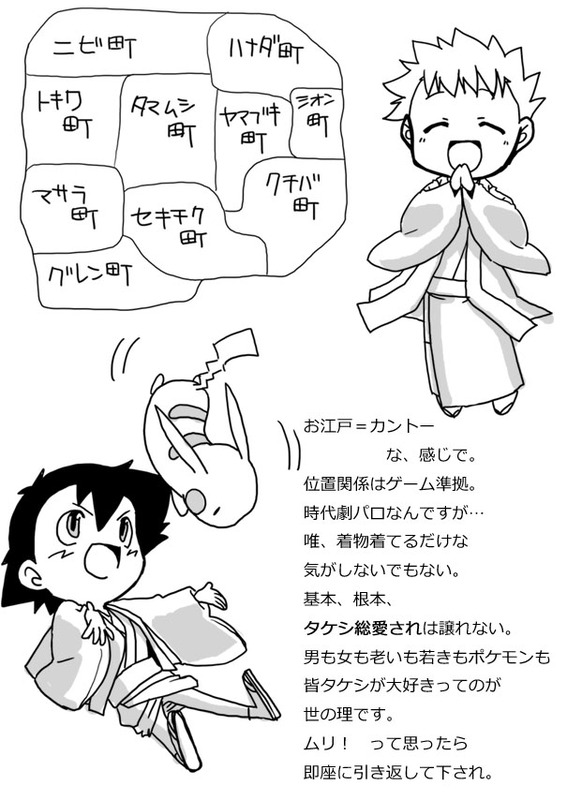 ニビ町
ハナダ町
トキワ
町
タマムシ
町
ヤマブキ
町
シオン
町
マサラ
町
セキチク
町
クチバ
町
グレン町
お江戸＝カントー
な、感じで。
位置関係はゲーム準拠。
時代劇パロなんですが…
唯、着物着てるだけな
気がしないでもない。
基本、根本、
タケシ総愛されは譲れない。
男も女も老いも若きもポケモンも
皆タケシが大好きってのが
世の理です。
ムリ！　って思ったら
即座に引き返して下され。